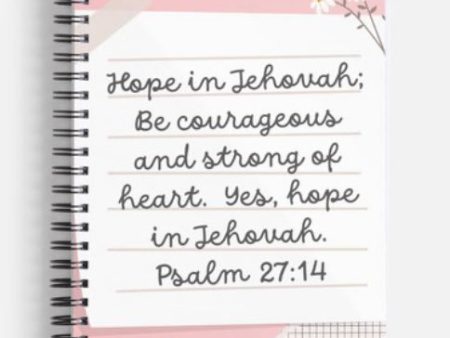 Hope in Jehovah;
Be courageous
and strong of
heart. Yes, hope
in Jehovah.
Psalm 27:14